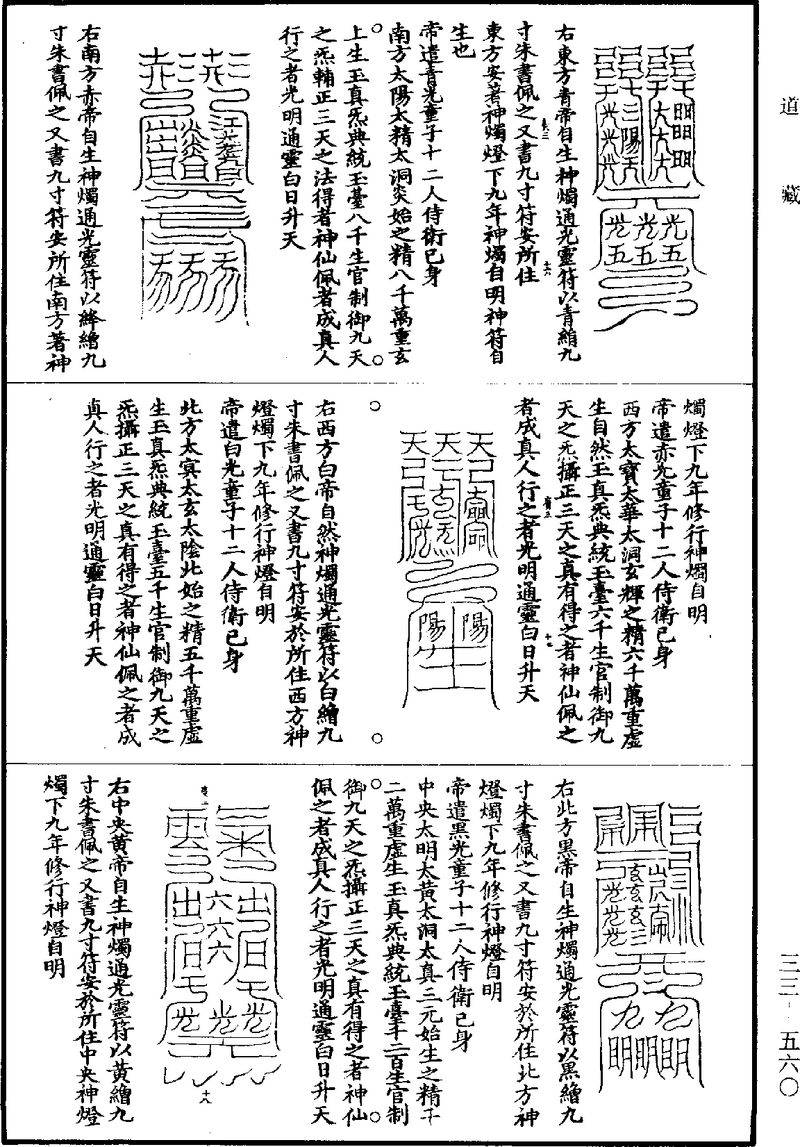 道藏
右東方青帝自生神燭通光靈符以青繒九
寸朱書佩之又書九寸符安所住
東方安著神燭燈下九年神燭自明神符自
生也
帝遣青光童子十二人侍衛己身
南方太陽太精太洞炎始之精八千萬重玄
上生玉真炁典統玉臺八千生官制御九天
之炁輔正三天之法得者神仙佩者成真人
行之者光明通靈白日升天
右南方赤帝自生神燭通光靈符以絳繒九
寸朱書佩之又書九寸符安所住南方著神
燭燈下九年修行神燭自明
帝遣赤光童子十二人侍衛己身
西方太寶太華太洞玄輝之精六千萬重虛
生自然玉真炁典統玉臺六千生官制御九
天之炁攝正三天之真有得之者神仙佩之
者成真人行之者光明通靈白日升天
右西方白帝自然神燭通光靈符以白繒九
寸朱書佩之又書九寸符安於所住西方神
燈燭下九年修行神燈自明
帝遣白光童子十二人侍衛己身
北方太冥太玄太陰北始之精五千萬重虛
生玉真炁典統玉臺五千生官制御九天之
炁攝正三天之真有得之者神仙佩之者成
真人行之者光明通靈白日升天
右北方黑帝自生神燭通光靈符以黑繒九
寸朱書佩之又書九寸符安於所住北方神
燈燭下九年修行神燈自明
帝遣黑光童子十二人侍衛己身
中央太明太黃太洞太真三元始生之精千
二萬重虛生玉真炁典統玉臺千二百生官制
御九天之炁攝正三天之真有得之者神仙
佩之者成真人行之者光明通靈白日升天
右中央黃帝自生神燭通光靈符以黃繒九
寸朱書佩之又書九寸符安於所住中央神燈
燭下九年修行神燈自明
三三-五六〇